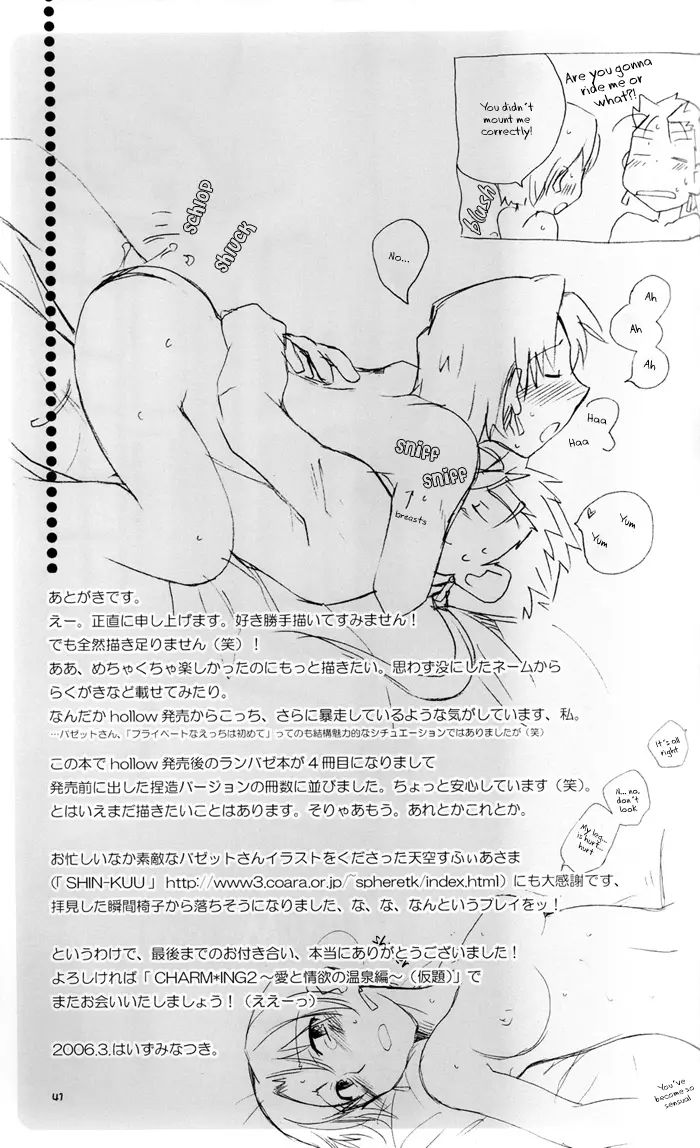 Are you gonna
ride me or
what?!
You didn't
mount me
correctly!
blush
schlop
shluck
No...
Ah
Ah
Ah
Haa
Haa
sniff
sniff
breasts
Yum
Yum
あとがきです。
えー。正直に申し上げます。好き勝手描いてすみません！
でも全然描き足りません（笑）！
ああ、めちゃくちゃ楽しかったのにもっと描きたい。思わず没にしたネームから
らくがきなど載せてみたり。
なんだか hollow 発売からこっち、さらに暴走しているような気がしています、私。
…バゼットさん、「プライベートなえっちは初めて」ってのも結構魅力的なシチュエーションではありましたが（笑）
この本で hollow 発売後のランバゼ本が４冊目になりまして
発売前に出した捏造バージョンの冊数に並びました。ちょっと安心しています（笑）。
とはいえまだ描きたいことはあります。そりゃあもう。あれとかこれとか。
お忙しいなか素敵なバゼットさんイラストをくださった天空すふぃあさま
（「 SHIN-KUU 」 http://www3.coara.or.jp/~spheretk/index.html）にも大感謝です、
拝見した瞬間椅子から落ちそうになりました、な、な、なんというプレイをッ！
というわけで、最後までのお付き合い、本当にありがとうございました！
よろしければ「 CHARM*ING2～愛と情欲の温泉編～（仮題）」で
またお会いいたしましょう！（ええーっ）
2006.3.はいずみなつき。
It's all
right
N... no,
don't
look
My leg...
is hurt...
hurt
You've
become so
sensual
47